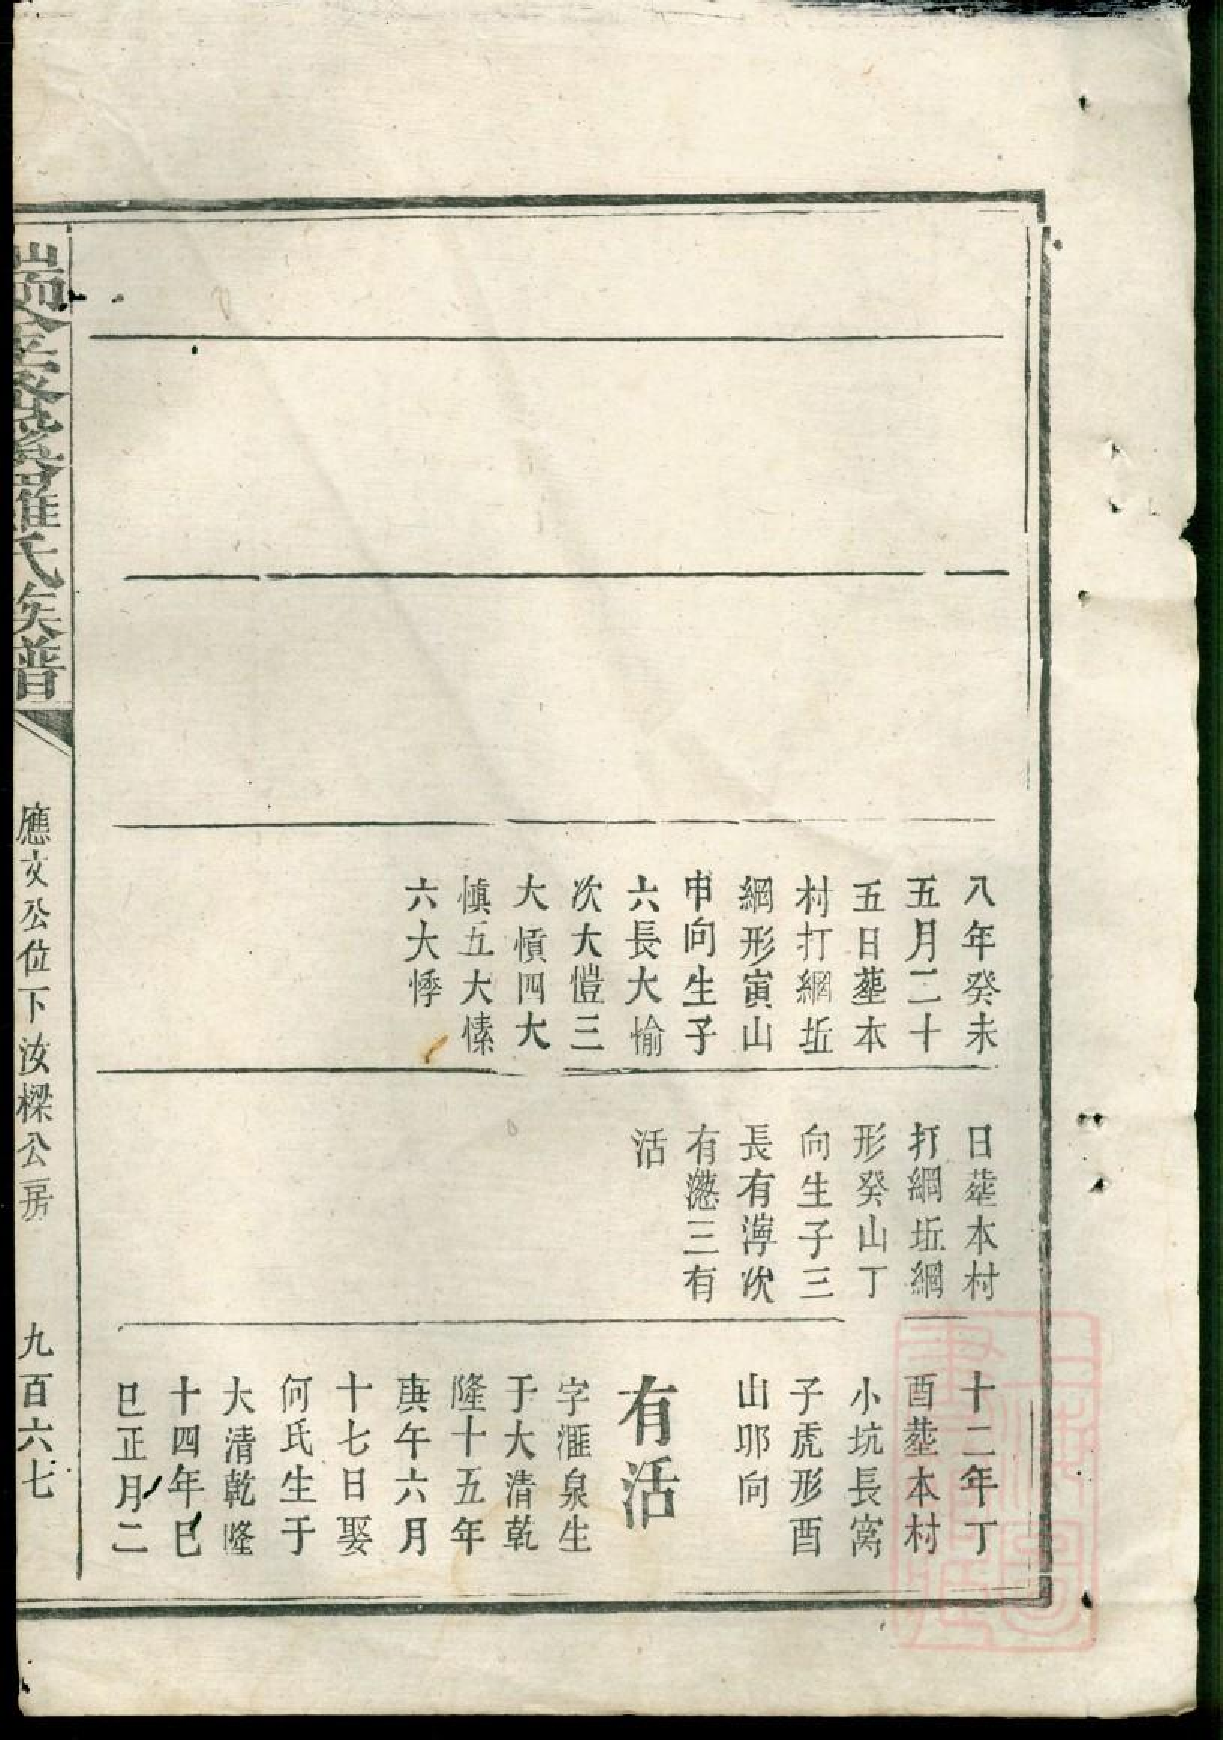 八年癸未
五月二十
五日塟本
村打網坵
綱形寅山
申向生子
六長大愉
次大愷三
大慎四大
慎五大愫
六大悸
日塟本村
打綱坵綱
形癸山丁
向生子三
長有濘次
有濨三有
活
十二年丁
酉塟本村
小坑長窩
子虎形酉
山邜向
有活
字滙泉生
于大清乾
隆十五年
庚午六月
十七日娶
何氏生于
大清乾隆
十四年巳
巳正月二
羅氏族譜
應文公位下汝樑公房
九百六七
上海圖書館藏